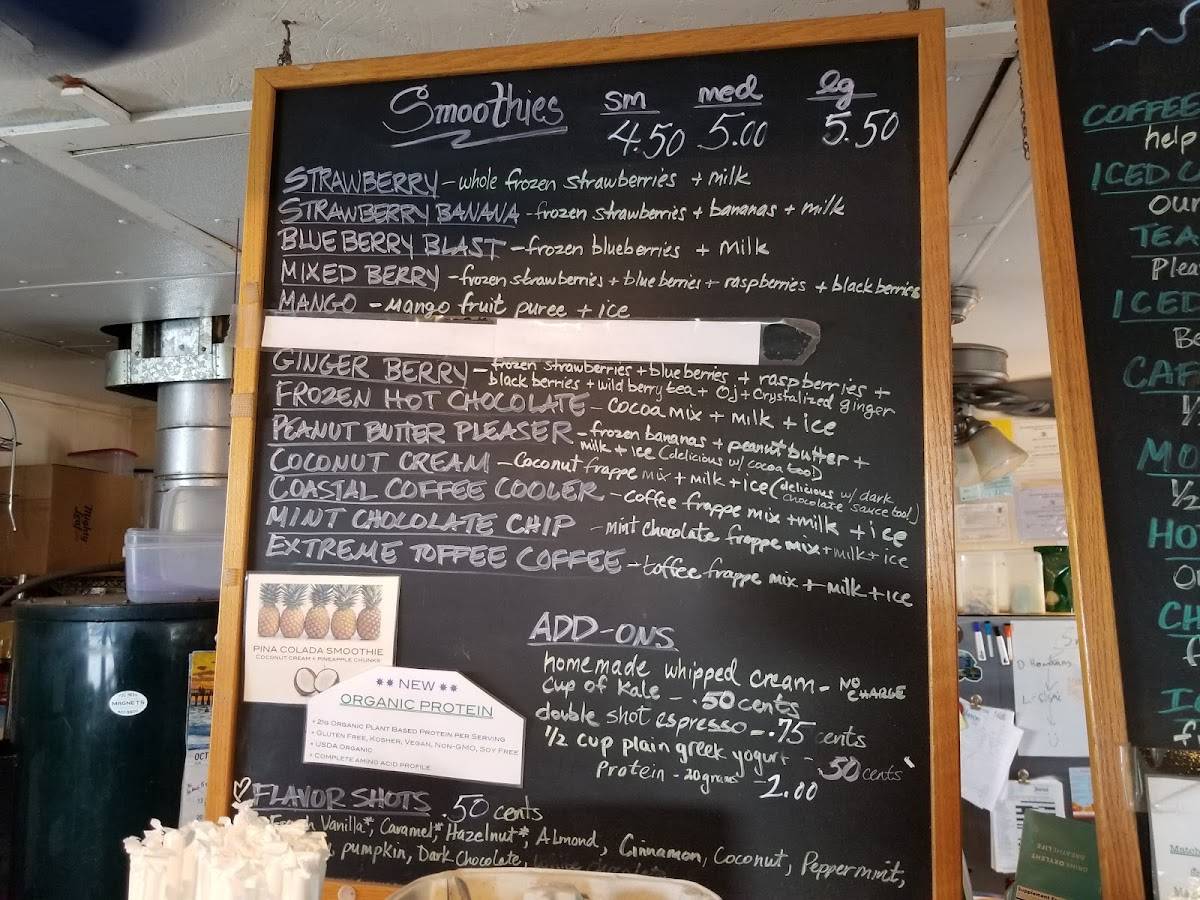 Smoothies sm med lg
4.50 5.00 5.50
STRAWBERRY - whole frozen strawberries + milk
STRAWBERRY BANANA - frozen strawberries + bananas + milk
BLUEBERRY BLAST - frozen blueberries + milk
MIXED BERRY - frozen strawberries + blueberries + raspberries + blackberries
MANGO - mango fruit puree + ice
GINGER BERRY - frozen strawberries + blueberries + raspberries +
blackberries + wild berry tea + OJ + Crystalized ginger
FROZEN HOT CHOCOLATE - cocoa mix + milk + ice
PEANUT BUTTER PLEASER - frozen bananas + peanut butter +
milk + ice (delicious w/ cocoa too!)
COCONUT CREAM - Coconut frappe mix + milk + ice (delicious w/ dark
chocolate sauce too!)
COASTAL COFFEE COOLER - coffee frappe mix + milk + ice
MINT CHOCOLATE CHIP - mint chocolate frappe mix + milk + ice
EXTREME TOFFEE COFFEE - toffee frappe mix + milk + ice
PINA COLADA SMOOTHIE
COCONUT CREAM + PINEAPPLE CHUNKS
** NEW **
ORGANIC PROTEIN
• 21g Organic Plant Based Protein per Serving
• Gluten Free, Kosher, Vegan, Non-GMO, Soy Free
• USDA Organic
• Complete amino acid profile
ADD-ONS
homemade whipped cream - NO CHARGE
cup of kale - .50 cents
double shot espresso - .75 cents
1/2 cup plain greek yogurt - .50 cents
Protein - 20grams - 2.00
FLAVOR SHOTS .50 cents
French Vanilla*, Caramel*, Hazelnut*, Almond, Cinnamon, Coconut, Peppermint,
pumpkin, Dark Chocolate,
MAGNETS
OCT
COFFEE
help
ICED
our
TEA
Plea
ICED
Be
CAF
1/
MO
1/2
HO
CH
f